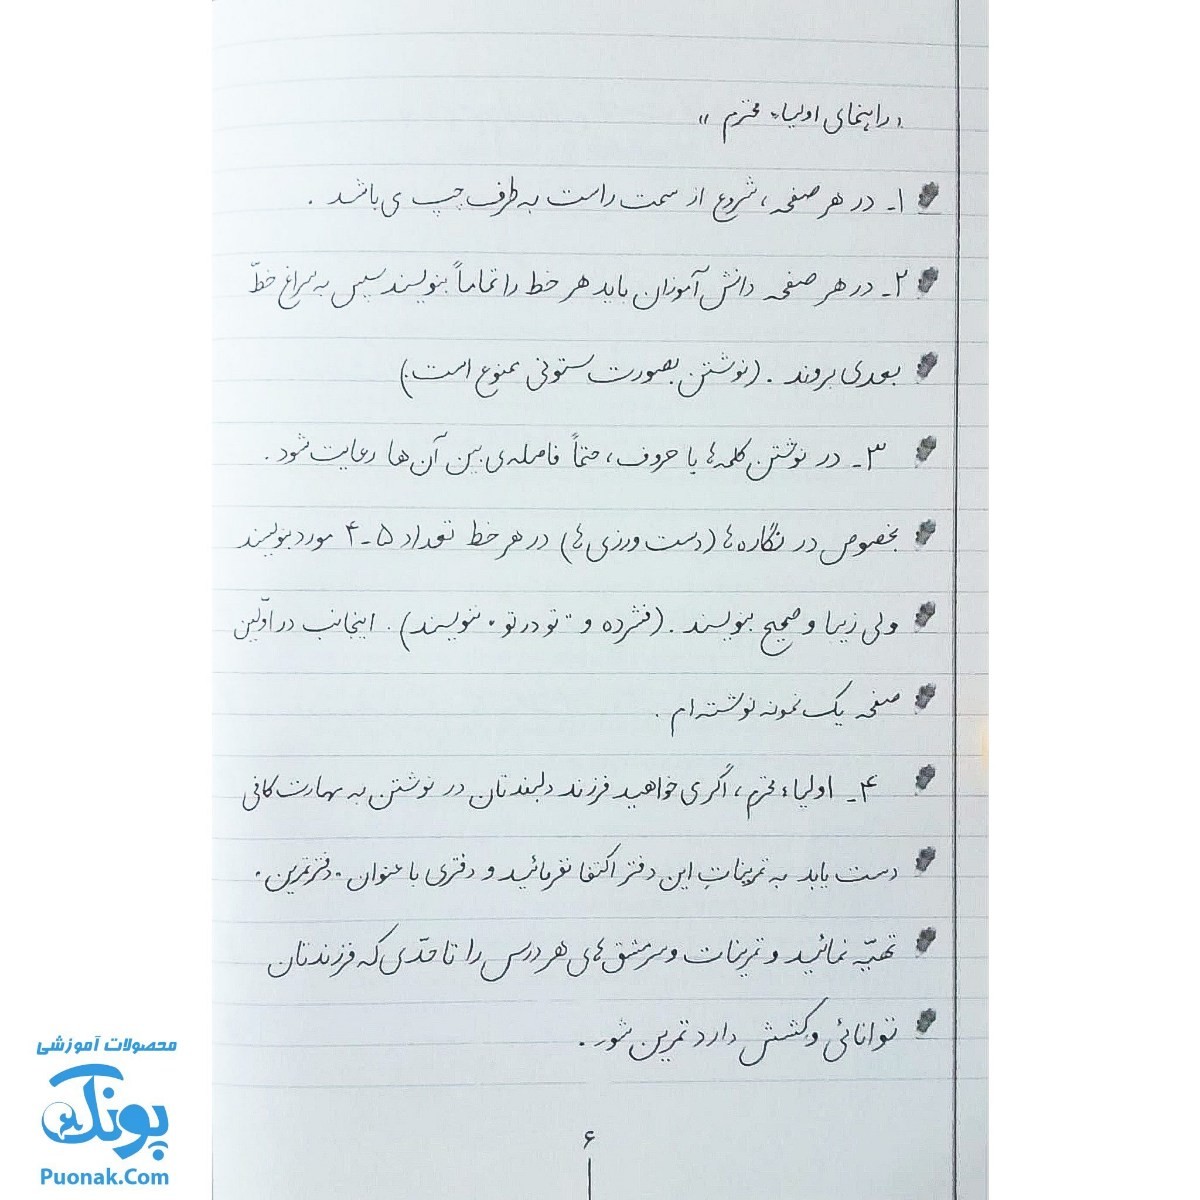 «راهنمای اولیاء محترم»
۱ـ در هر صفحه، شروع از سمت راست به طرف چپ ی باشد .
۲ـ در هر صفحه دانش آموزان باید هر خط را تماماً بنویسند سپس به سراغ خطّ
بعدی بروند . (نوشتن بصورت ستونی ممنوع است.)
۳ـ در نوشتن کلمه ها یا حروف، حتماً فاصله ی بین آن ها رعایت شود .
بخصوص در نگاره ها (دست ورزی ها) در هر خط تعداد ۵ـ۴ مورد بنویسند
ولی زیبا و صحیح بنویسند . (فشرده و "تو در تو" ننویسند) . اینجانب در اوّلین
صفحه یک نمونه نوشته ام .
۴ـ اولیاء محترم، اگر ی خواهید فرزند دلبندتان در نوشتن به مهارت کافی
دست یابد به تمرینات این دفتر اکتفا نفرمائید و دفتری با عنوان "دفتر تمرین"
تهیّه نمائید و تمرینات و سرمشق های هر درس را تا حدّی که فرزندتان
توانائی و کشش دارد تمرین شود .
۶
محصولات آموزشی
پونک
Puonak.Com